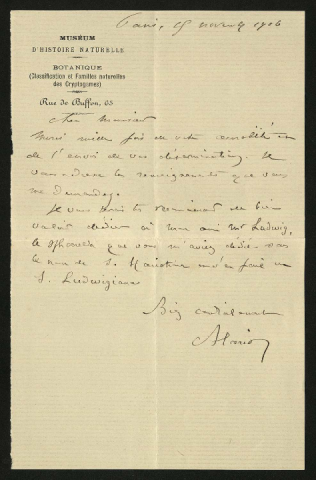 Paris, 15 novembre 1906
MUSÉUM
D'HISTOIRE NATURELLE
BOTANIQUE
(Classification et Familles naturelles
des Cryptogames)
Rue de Buffon, 63
Cher Monsieur
Merci mille fois de votre amabilité et
de l'envoi de vos déterminations. Je
vous adresse les renseignements que vous
me demandez.
Je vous serais reconnaissant de bien
vouloir dédier à mon ami Mr Ludwig,
le que vous m'aviez dédié sous
le nom de S. Hariotina et d'en faire un
S. Ludwigiana
Bien cordialement
PHariot